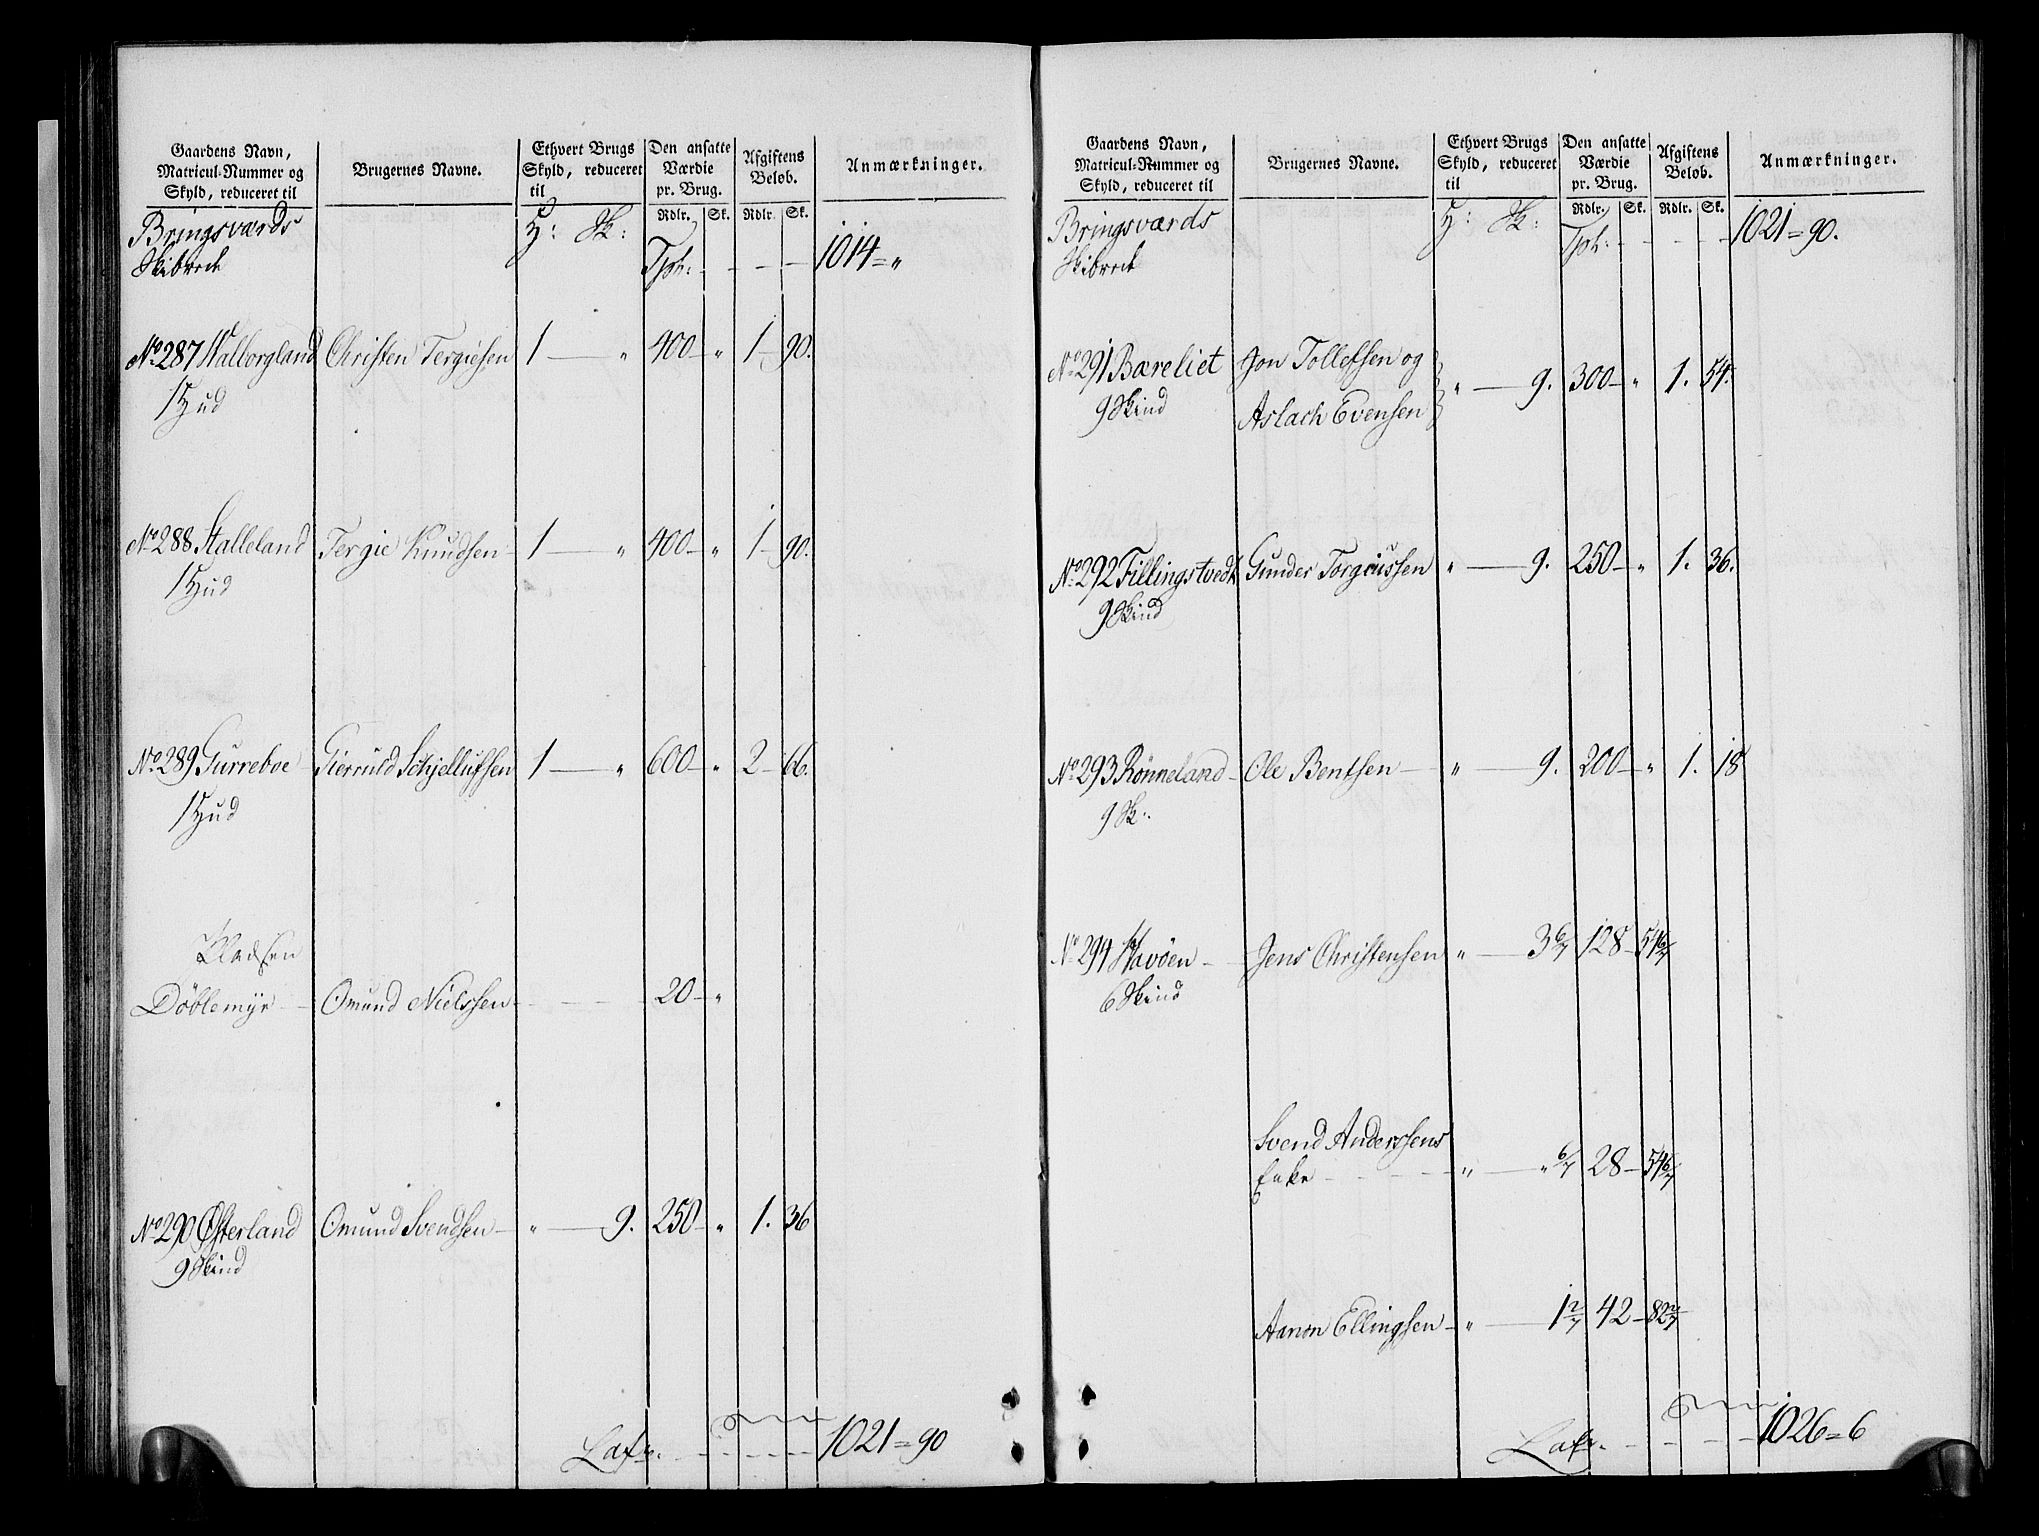 Gaardens Navn,
Matricul-Nummer og
Skyld, reduceret til
Brugernes Navne.
Ethvert Brugs
Skyld, reduceret
til
Den ansatte
Værdie
pr. Brug.
Rdlr. Sk.
Afgiftens
Beløb.
Rdlr. Sk.
Anmærkninger.
Bringsværds H: Sk:
Skibrede Tpt: - - - 1014 = "
No 287 Walborgland Christen Tergiesen 1 — " 400 — " 1 — 90.
1 Hud
No 288 Stalleland Tergie Knudsen — 1 — " 400 — " 1 — 90.
1 Hud
No 289 Gurreboe Gierruld Schjellufsen 1 — " 600 — " 2 — 66.
1 Hud
Pladsen
Döblemyr — Omund Nielssen — — — 20 — "
No 290 Østerland Omund Svendsen — " — 9. 250 — " 1. 36
9 Skind
Lats. - - - 1021 = 90
Gaardens Navn,
Matricul-Nummer og
Skyld, reduceret til
Brugernes Navne.
Ethvert Brugs
Skyld, reduceret
til
Den ansatte
Værdie
pr. Brug.
Rdlr. Sk.
Afgiftens
Beløb.
Rdlr. Sk.
Anmærkninger.
Bringsværds H: Sk:
Skibrede Tpt: - - - 1021 = 90.
No 291 Bæreliet Jon Tollefsen og
9 Skind Aslach Evensen " — 9. 300 — " 1. 54.
No 292 Fillingstvedt Gunder Torgiussen " — 9. 250 — " 1. 36.
9 Skind
No 293 Rönneland — Ole Bentsen — " — 9. 200 — " 1. 18
9 Sk:
No 294 Havöen — Jens Christensen " — 3 6/7 128 — 54 6/7
6 Skind
Svend Anderssens
Enke - - - " — " 6/7 28 — 54 6/7
Aanon Ellingsen — " — 1 2/7 42 — 82 2/7
Lats. - - - 1026 = 6